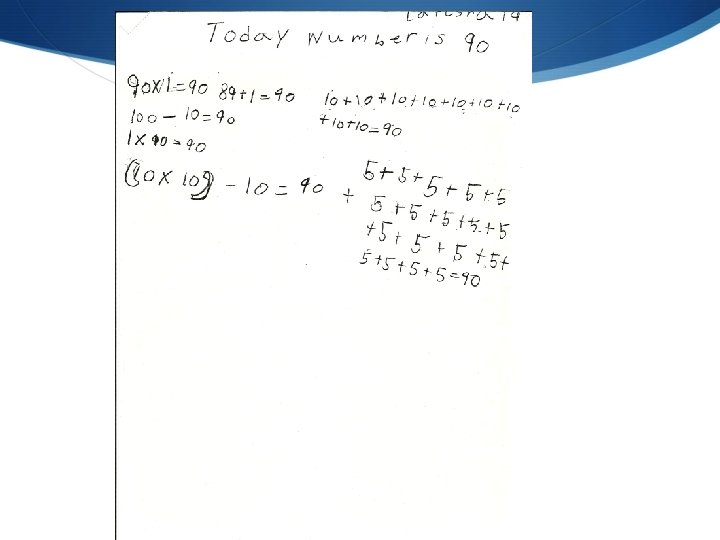 Today Number is 90
90x1=90 89+1=90
100-10=90
1x90=90
10+10+10+10+10+10+10
+10+10=90
(10x10)-10=90
5+5+5+5+5
+ 5+5+5+5+5
+5+5+5+5+
5+5+5+5=90